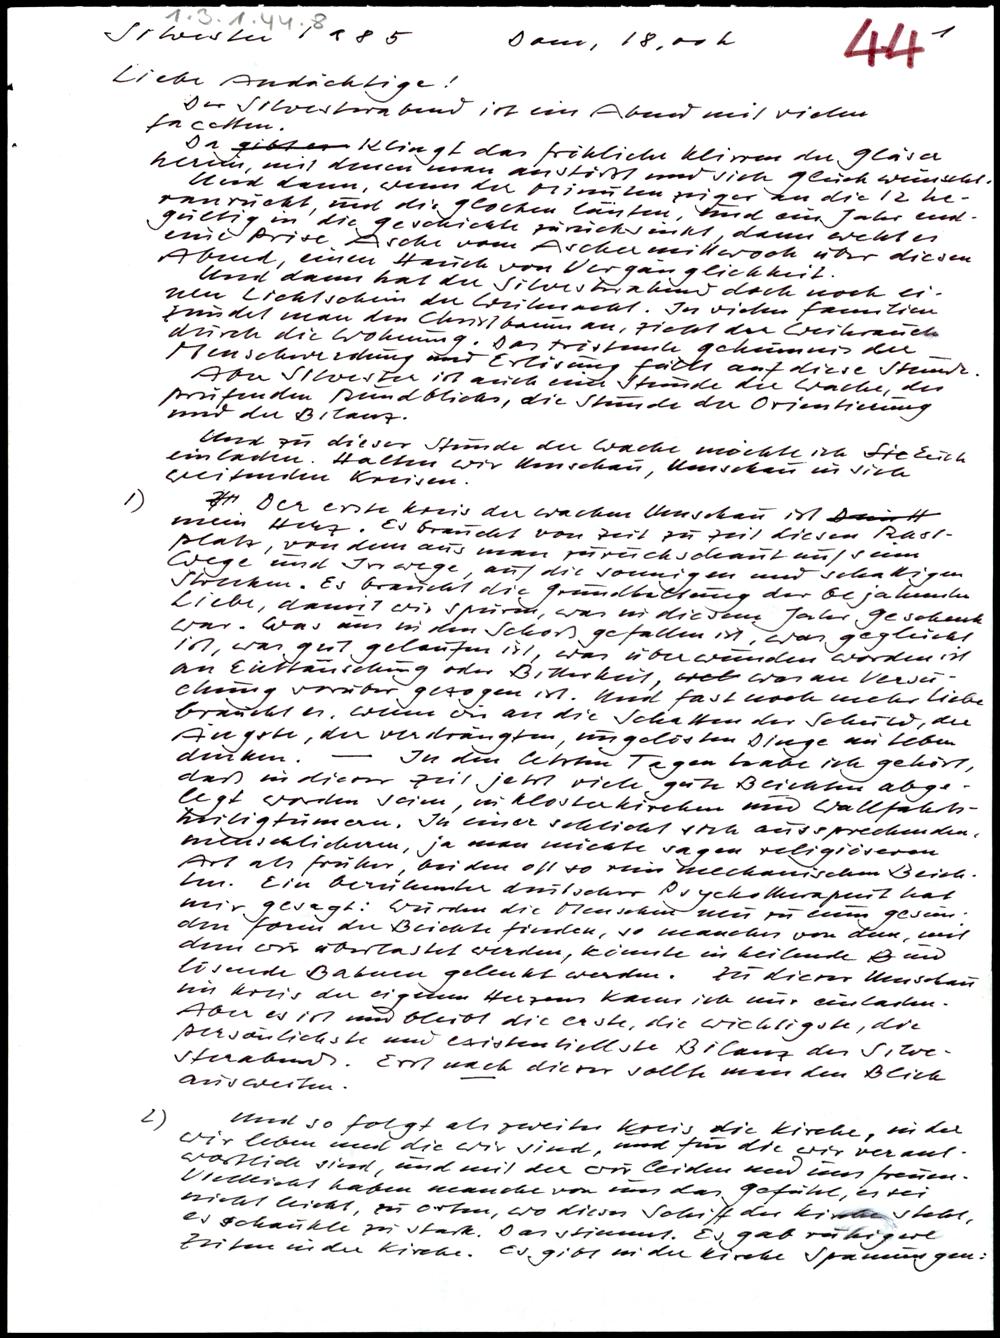 1.3.1.44.8
Silvester 1985 Dom, 18,00 h 44 1
Liebe Andächtige!
Der Silvesterabend ist ein Abend mit vielen
Facetten.
Da gibt es klingt das fröhliche Klirren der Gläser
herein, mit denen man anstößt und sich Glück wünscht.
Und dann, wenn der Minutenzeiger an die 12 he-
ranrückt, und die Glocken läuten, und ein Jahr end-
gültig in die Geschichte zurücksinkt, dann weht es
eine Prise Asche vom Aschermittwoch über diesen
Abend, einen Hauch von Vergänglichkeit.
Und dann hat der Silvesterabend doch noch ei-
nen Lichtschein der Weihnacht. In vielen Familien
zündet man den Christbaum an, zieht der Weihrauch
durch die Wohnung. Das tröstende Geheimnis der
Menschwerdung und Erlösung fällt auf diese Stunde.
Aber Silvester ist auch eine Stunde der Wache, des
prüfenden Rundblicks, die Stunde der Orientierung
und der Bilanz.
Und zu dieser Stunde der Wache möchte ich Sie Euch
einladen. Halten wir Umschau, Umschau in sich
weitenden Kreisen.
1) Der erste Kreis der wachen Umschau ist
mein Herz. Es braucht von Zeit zu Zeit diesen Rast-
platz, von dem aus man zurückschaut auf seine
Wege und Irrwege, auf die sonnigen und schattigen
Strecken. Es braucht die Grundhaltung der bejahenden
Liebe, damit wir spüren, was in diesem Jahr Geschenk
war. Was uns in den Schoß gefallen ist, was geglückt
ist, was gut gelaufen ist, was überwunden worden ist
an Enttäuschung oder Bitterkeit, was an Versu-
chung vorüber gezogen ist. Und fast noch mehr Liebe
braucht es, wenn wir an die Schatten der Schuld, der
Ängste, der verdrängten, ungelösten Dinge im Leben
denken. — In den letzten Tagen habe ich gehört,
daß in dieser Zeit jetzt viele gute Beichten abge-
legt worden seien, in Klosterkirchen und Wallfahrts-
heiligtümern. In einer schlicht sich aussprechenden,
menschlicheren, ja man möchte sagen religiöseren
Art als früher, bei den oft so rein mechanischen Beich-
ten. Ein berühmter deutscher Psychotherapeut hat
mir gesagt: Würden die Menschen neu zu einer gesun-
den Form der Beichte finden, so manches von dem, mit
dem wir überlastet werden, könnte in heilende und
lösende Bahnen gelenkt werden. Zu dieser Umschau
im Kreis des eigenen Herzens kann ich nur einladen.
Aber es ist und bleibt die erste, die wichtigste, die
persönlichste und existentiellste Bilanz des Silve-
sterabends. Erst nach dieser sollte man den Blick
ausweiten.
2) Und so folgt als zweiter Kreis die Kirche, in der
wir leben und die wir sind, und für die wir verant-
wortlich sind, und mit der wir leiden und uns freuen.
Vielleicht haben manche von uns das Gefühl, es sei
nicht leicht, zu orten, wo dieses Schiff der Kirche steht,
es schaukle zu stark. Das stimmt. Es gab ruhigere
Zeiten in der Kirche. Es gibt in der Kirche Spannungen: